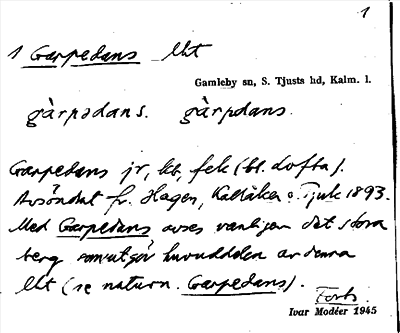 1
1 Garpedans lht
Gamleby sn, S. Tjusts hd, Kalm. l.
gàrpədans. gàrpdans.
Garpedans jr, lht, fek (bl. dofta).
Avsöndat fr. Hagen, Kallåker o. Tjuk 1893.
Med Garpedans avses vanligen det stora
berg som utgör huvuddelen av denna
lht (se naturn. Garpedans).
Forts.
Ivar Modéer 1945